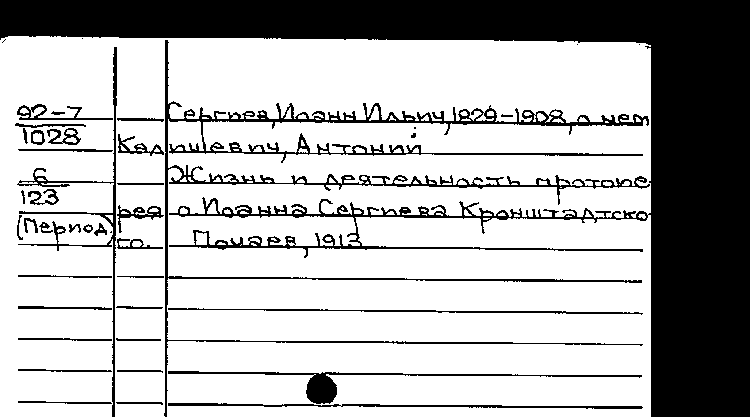 92-7
1028
6
123
(Период)
Сергиев, Иоанн Ильич, 1829-1908, о нем
Калишевич, Антоний
Жизнь и деятельность протоие-
рея о Иоанна Сергиева Кронштадтско-
го. Почаев, 1913